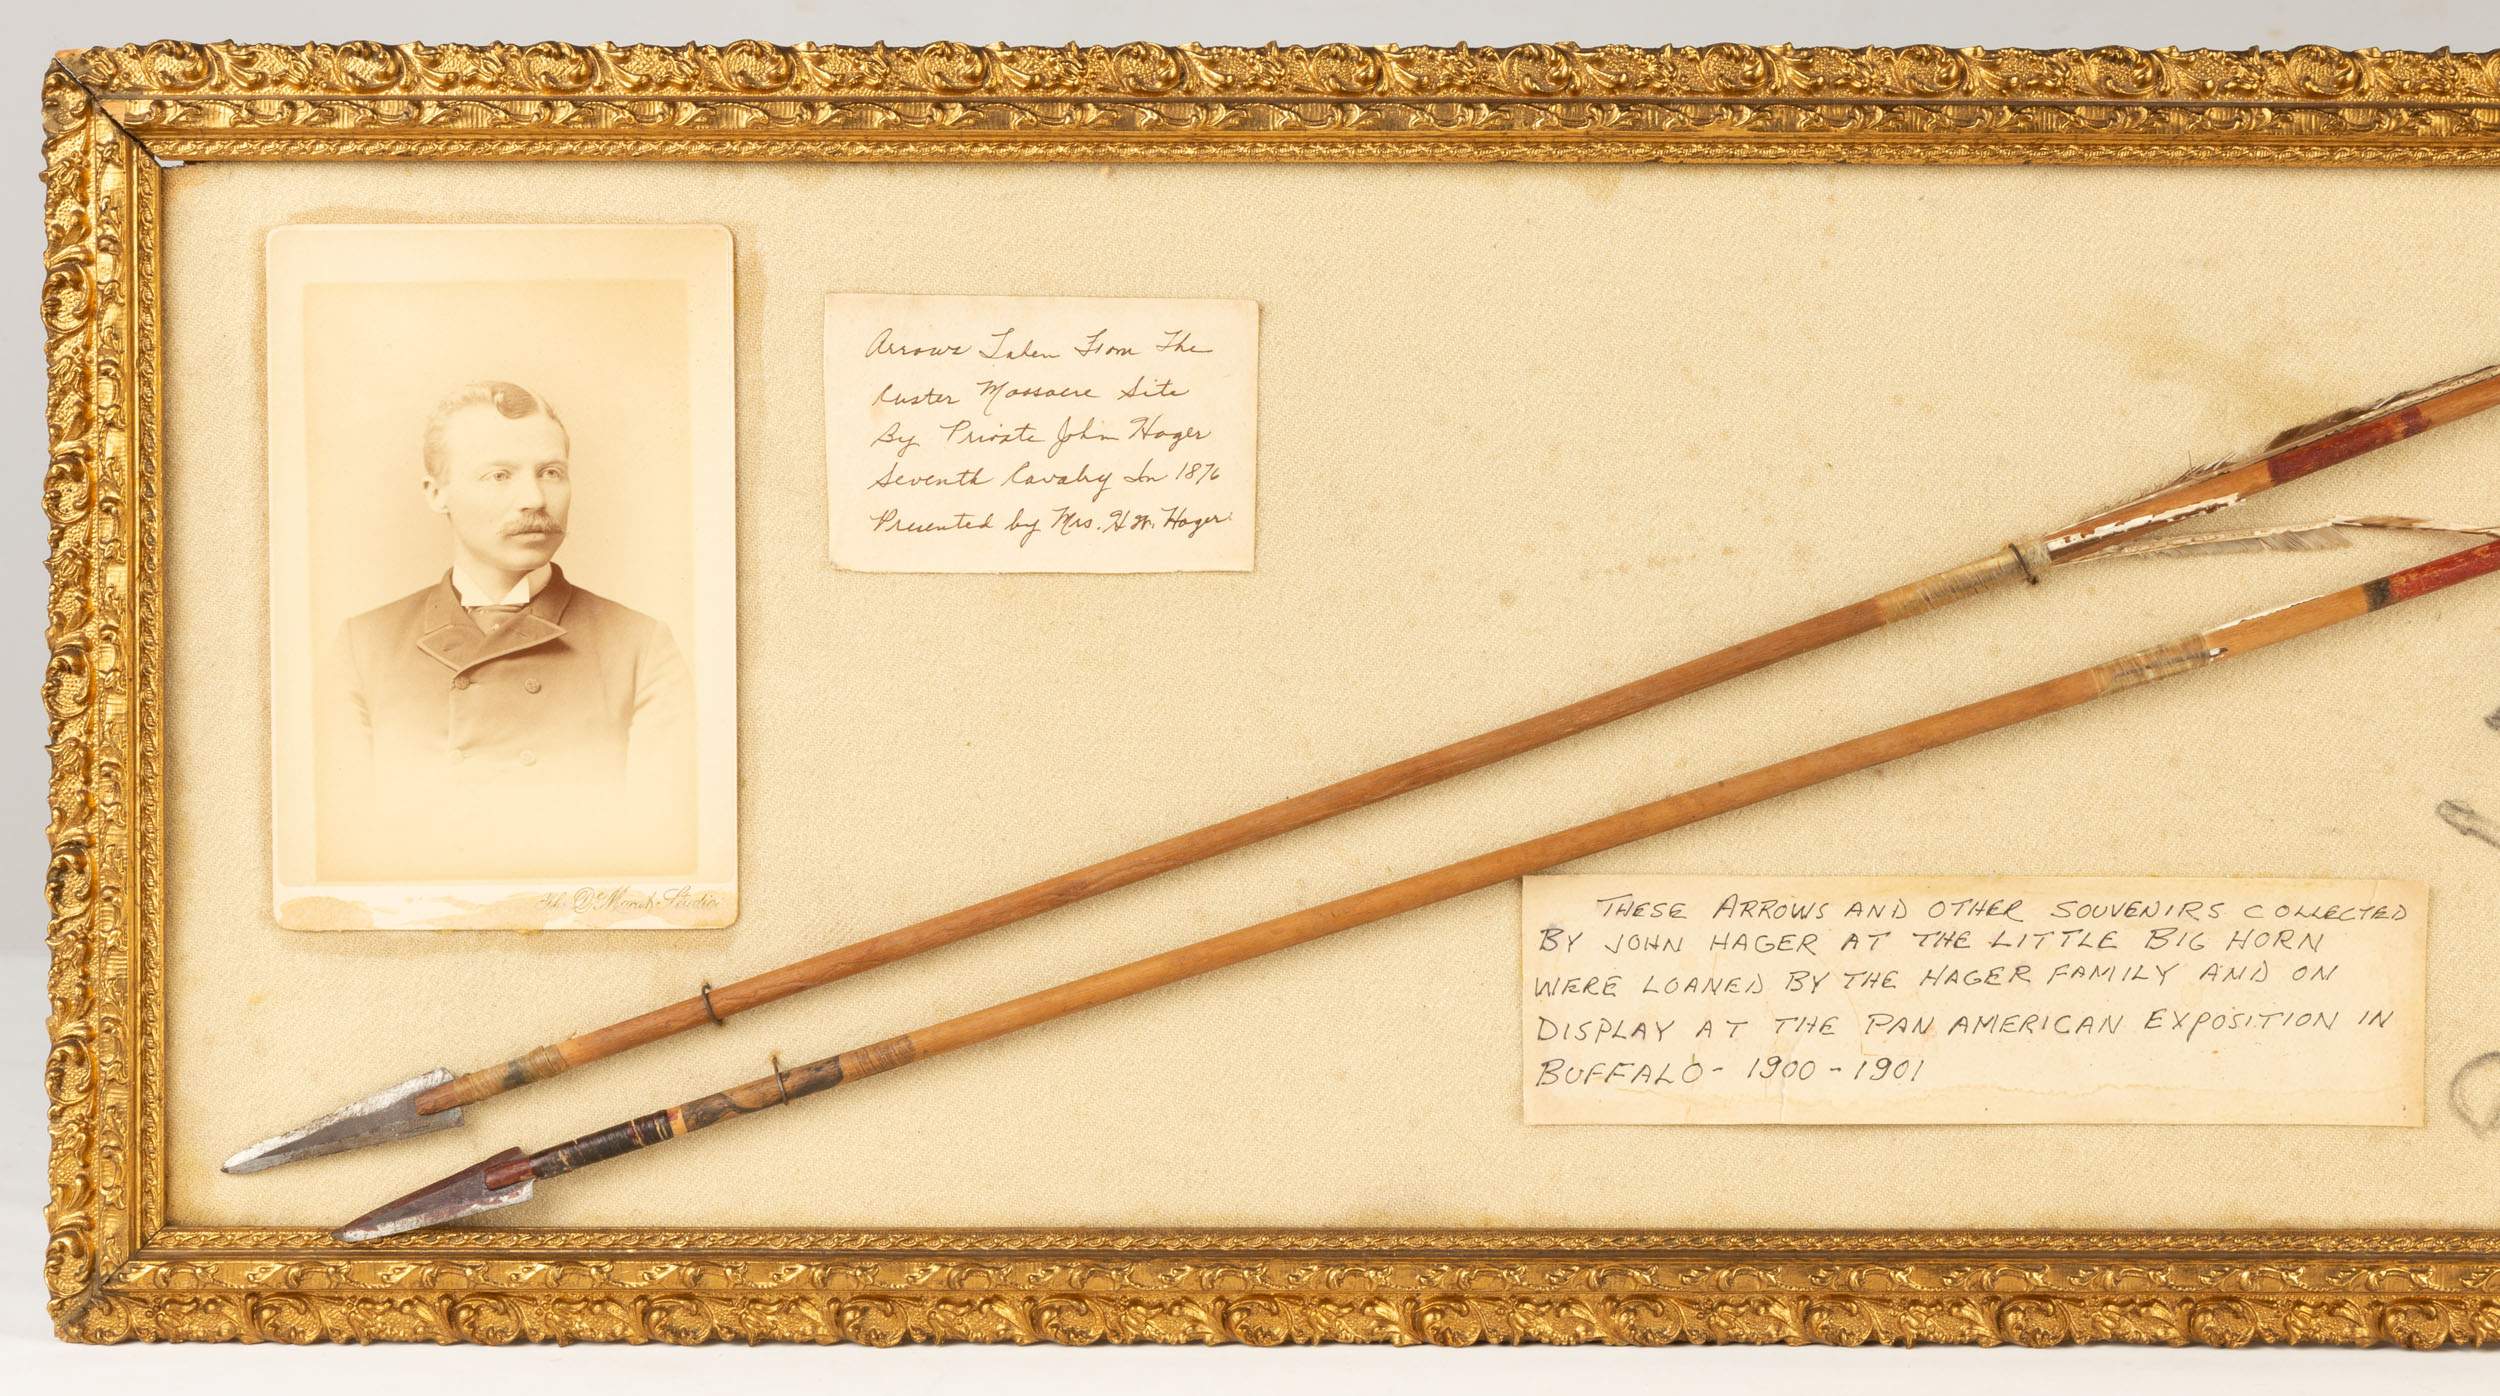 Arrows Taken From The
Custer Massacre Site
By Private John Hager
Seventh Cavalry In 1876
Presented by Mrs. H.W. Hager
THESE ARROWS AND OTHER SOUVENIRS COLLECTED
BY JOHN HAGER AT THE LITTLE BIG HORN
WERE LOANED BY THE HAGER FAMILY AND ON
DISPLAY AT THE PAN AMERICAN EXPOSITION IN
BUFFALO - 1900 - 1901
Studio